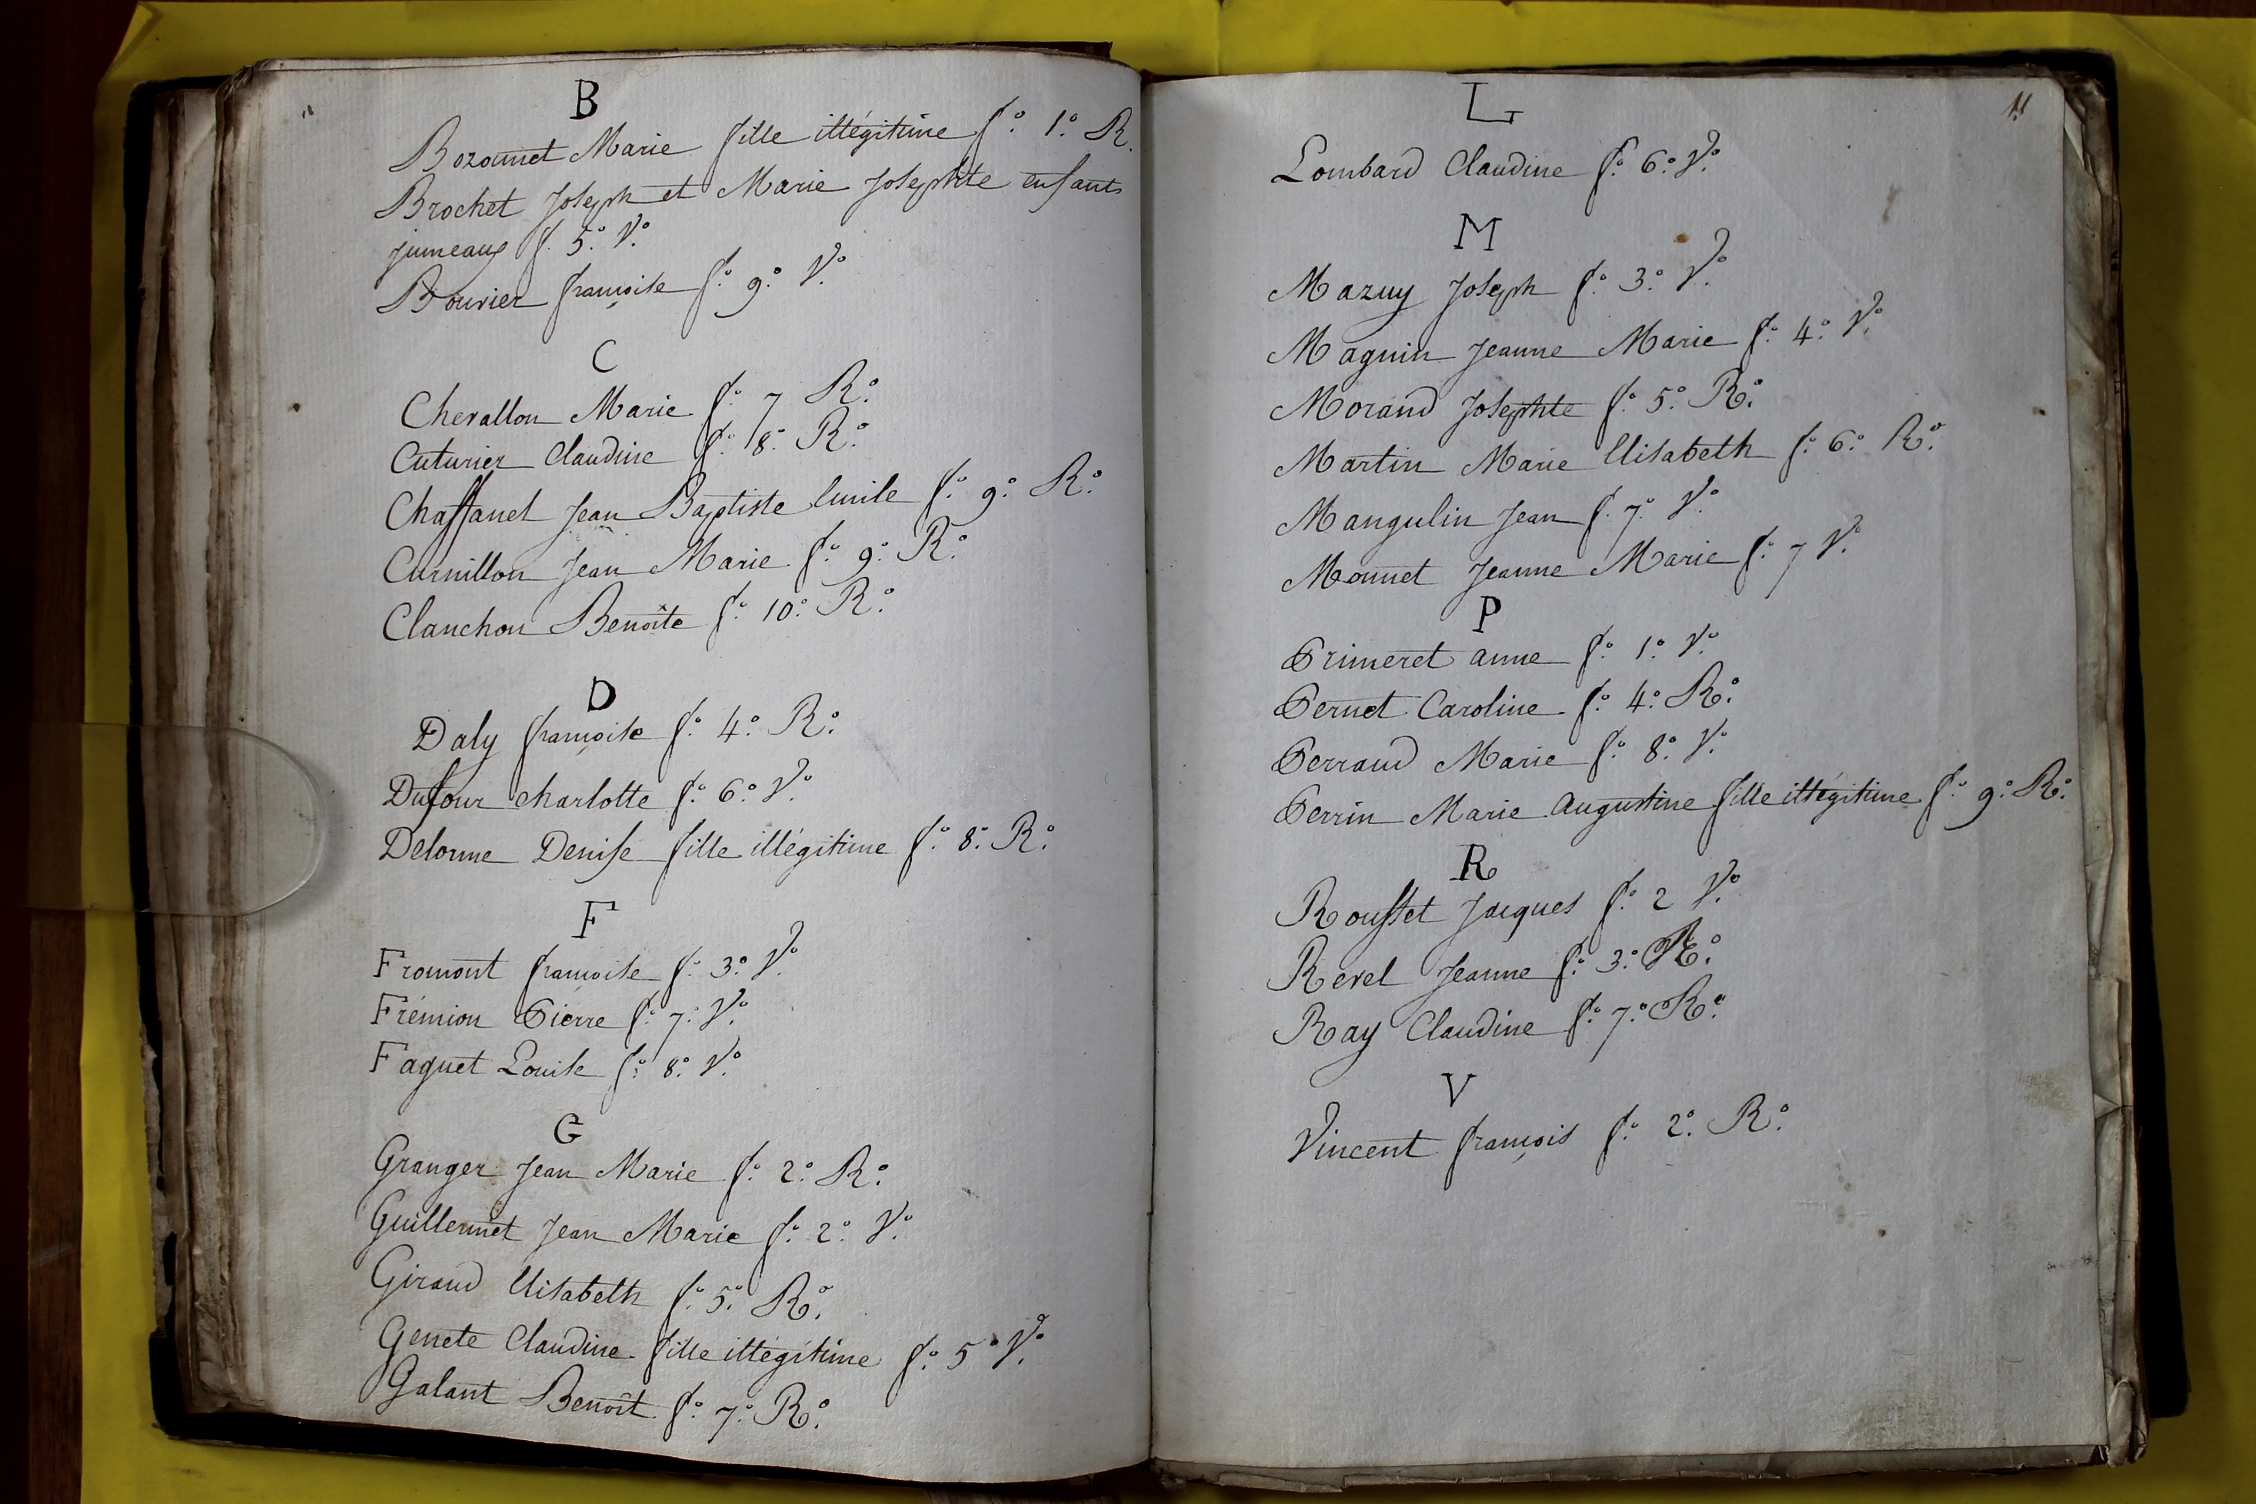 B
Bozonnet Marie fille illégitime f.° 1.° R.
Brochet Joseph et Marie Josephte enfants
jumeaux f. 5.° V.°
Bouvier françoise f.° 9.° V.°
C
Chevallon Marie f.° 7 R.°
Cuturier Claudine f.° 8.° R.°
Chaffanet Jean Baptiste Emile f.° 9.° R.°
Curnillon Jean Marie f.° 9.° R.°
Clanchon Benoîte f.° 10.° R.°
D
Daly françoise f.° 4.° R.°
Dufour charlotte f.° 6.° V.°
Delorme Denise fille illégitime f.° 8.° R.°
F
Fromont françoise f.° 3.° V.°
Frémion Pierre f.° 7.° V.°
Faguet Louise f.° 8.° V.°
G
Granger Jean Marie f.° 2.° R.°
Guillermet Jean Marie f.° 2.° V.°
Giraud Elisabeth f.° 5.° R.°
Genete Claudine fille illégitime f.° 5° V.°
Galant Benoît f.° 7.° R.°
11
L
Lombard Claudine f.° 6.° V.°
M
Mazuy Joseph f.° 3.° V.°
Magnin Jeanne Marie f.° 4.° V.°
Morand Josephte f.° 5.° R.°
Martin Marie Elisabeth f.° 6.° R.°
Mangulin Jean f. 7.° V.°
Monnet Jeanne Marie f.° 7 V.°
P
Primeret anne f.° 1.° V.°
Pernet Caroline f.° 4.° R.°
Perraud Marie f.° 8.° V.°
Perrin Marie Augustine fille illégitime f.° 9.° R.°
R
Rousset Jacques f.° 2 V.°
Revel Jeanne f.° 3.° R.°
Ray Claudine f.° 7.° R.°
V
Vincent françois f.° 2.° R.°